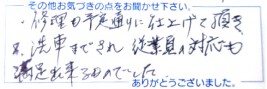 その他お気づきの点をお聞かせ下さい。
・修理も予定通りに仕上げて頂き
又、洗車までされ従業員の対応も
満足出来るものでした。
ありがとうございました。